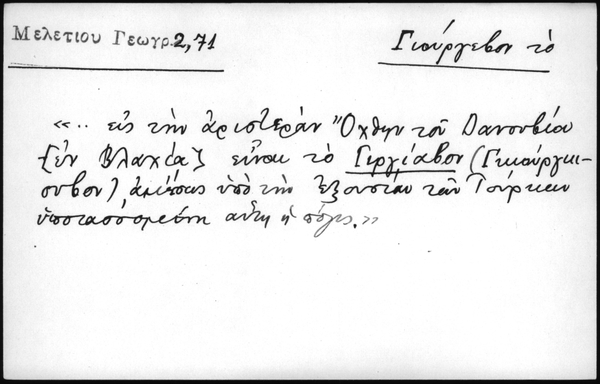 Μελετίου Γεωγρ. 2,71
Γιούργεβον τὸ
«.. εἰς τὴν ἀριστερὰν Ὄχθην τοῦ Δανουβίου
[ἐν Βλαχίᾳ] εἶναι τὸ Γιργίαβον (Γκιούργκι-
ουβον), ἀμέσως ὑπὸ τὴν Ἐξουσίαν τῶν Τούρκων
ὑποτασσομένη αὕτη ἡ πόλις.»